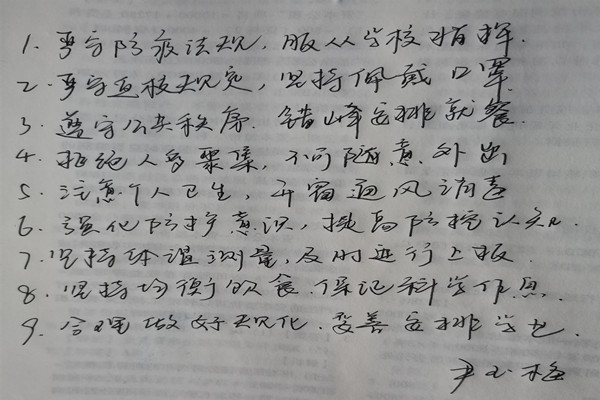 1. 严守防疫法规，服从学校指挥.
2. 严守查核规定，坚持佩戴口罩.
3. 遵守公共秩序，错峰安排就餐.
4. 拒绝人多聚集，不可随意外出
5. 注意个人卫生，开窗通风消毒
6. 强化防护意识，提高防控认知.
7. 坚持体温测量，及时进行上报.
8. 坚持均衡饮食，保证科学作息.
9. 合理做好规化，妥善安排学也.
尹玉梅